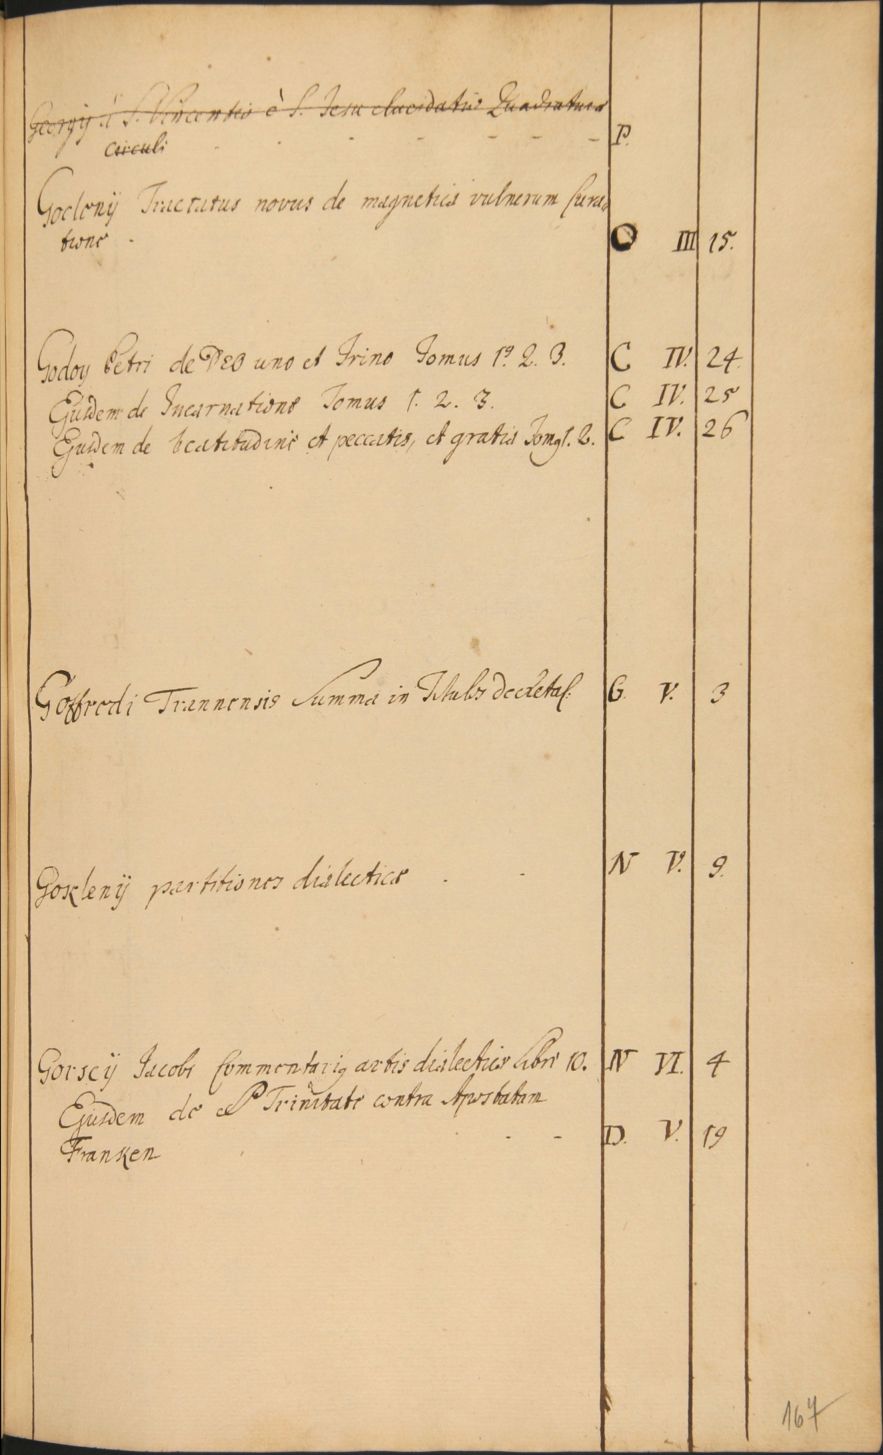 Georgij à S. Vincentio è S. Jesu elucidatio Quadratura
circuli - - - - - - P.
Goclenij Tractatus novus de magnetica vulnerum Cura-
tione - O III 15.
Godoy Petri de DEO uno et Trino Tomus 1º. 2. 3. C IV. 24.
Ejusdem de Incarnatione Tomus 1. 2. 3. C IV. 25
Ejusdem de beatitudine et peccatis, et gratia Tomq 1. 2. C IV. 26
Goffredi Trannensis Summa in Titulos decretal. G. V. 3
Goklenij partitiones dialecticae - - N V. 9.
Gorscij Jacobi Commentariq artis dialecticae Libri 10. N VI. 4
Ejusdem de Trinitate contra Apostatam
Franken - - D. V. 19
167